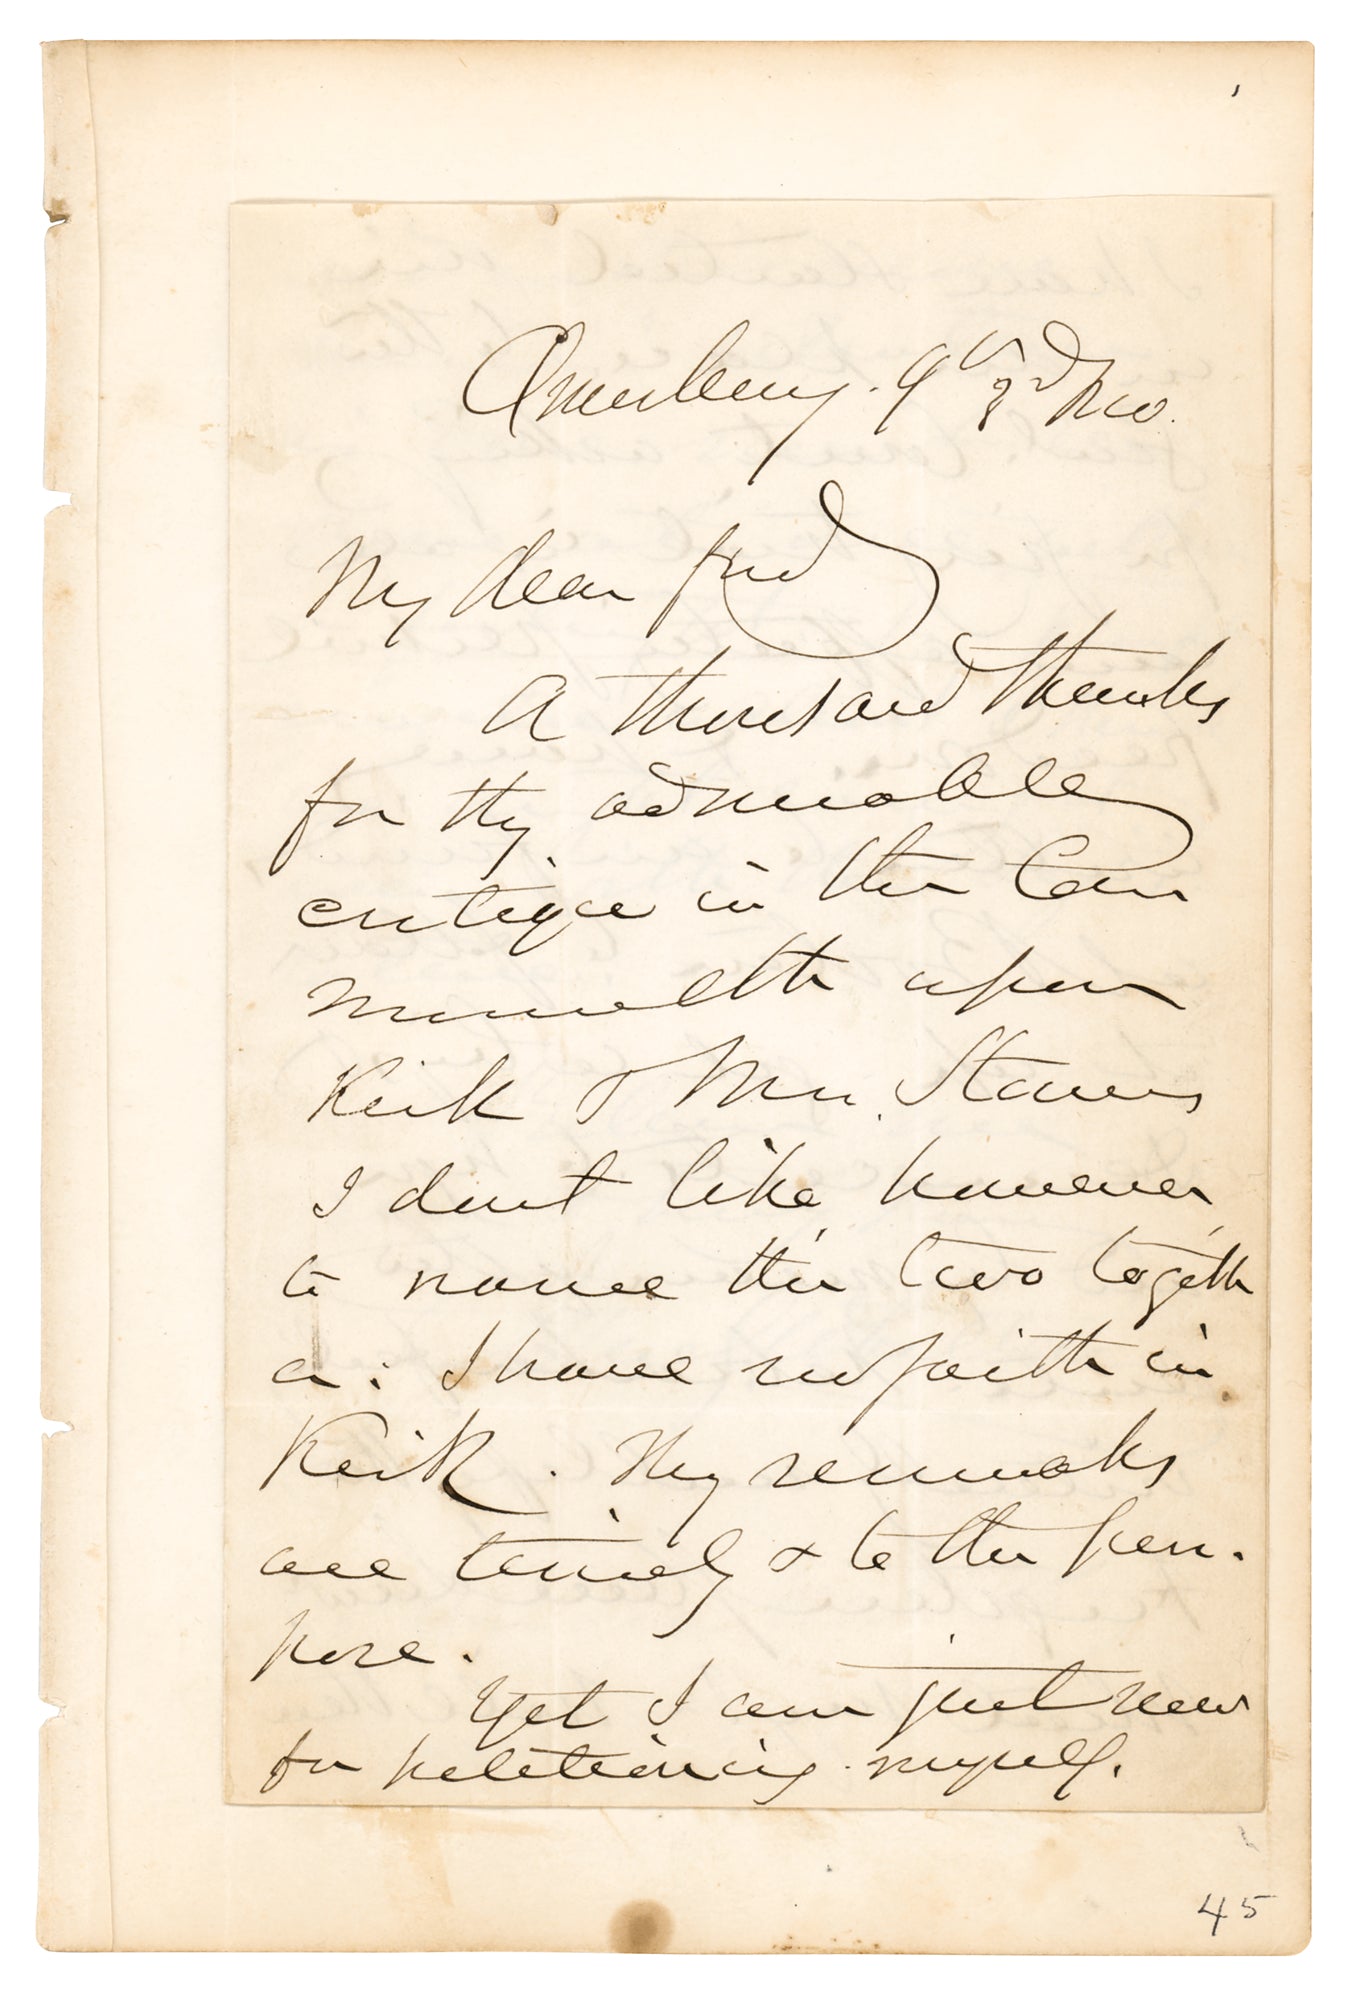 Amesbury. 9th 3rd Mo.
My dear frnd
A thousand thanks
for thy admirable
critique in the Com
monwealth upon
Kirk & Mrs. Stowe
I don't like, however,
to name the two togeth
er: I have no faith in
Kirk. Thy remarks
are timely & to the pur-
pose.
Yet I am just now
for petitioning myself.
45